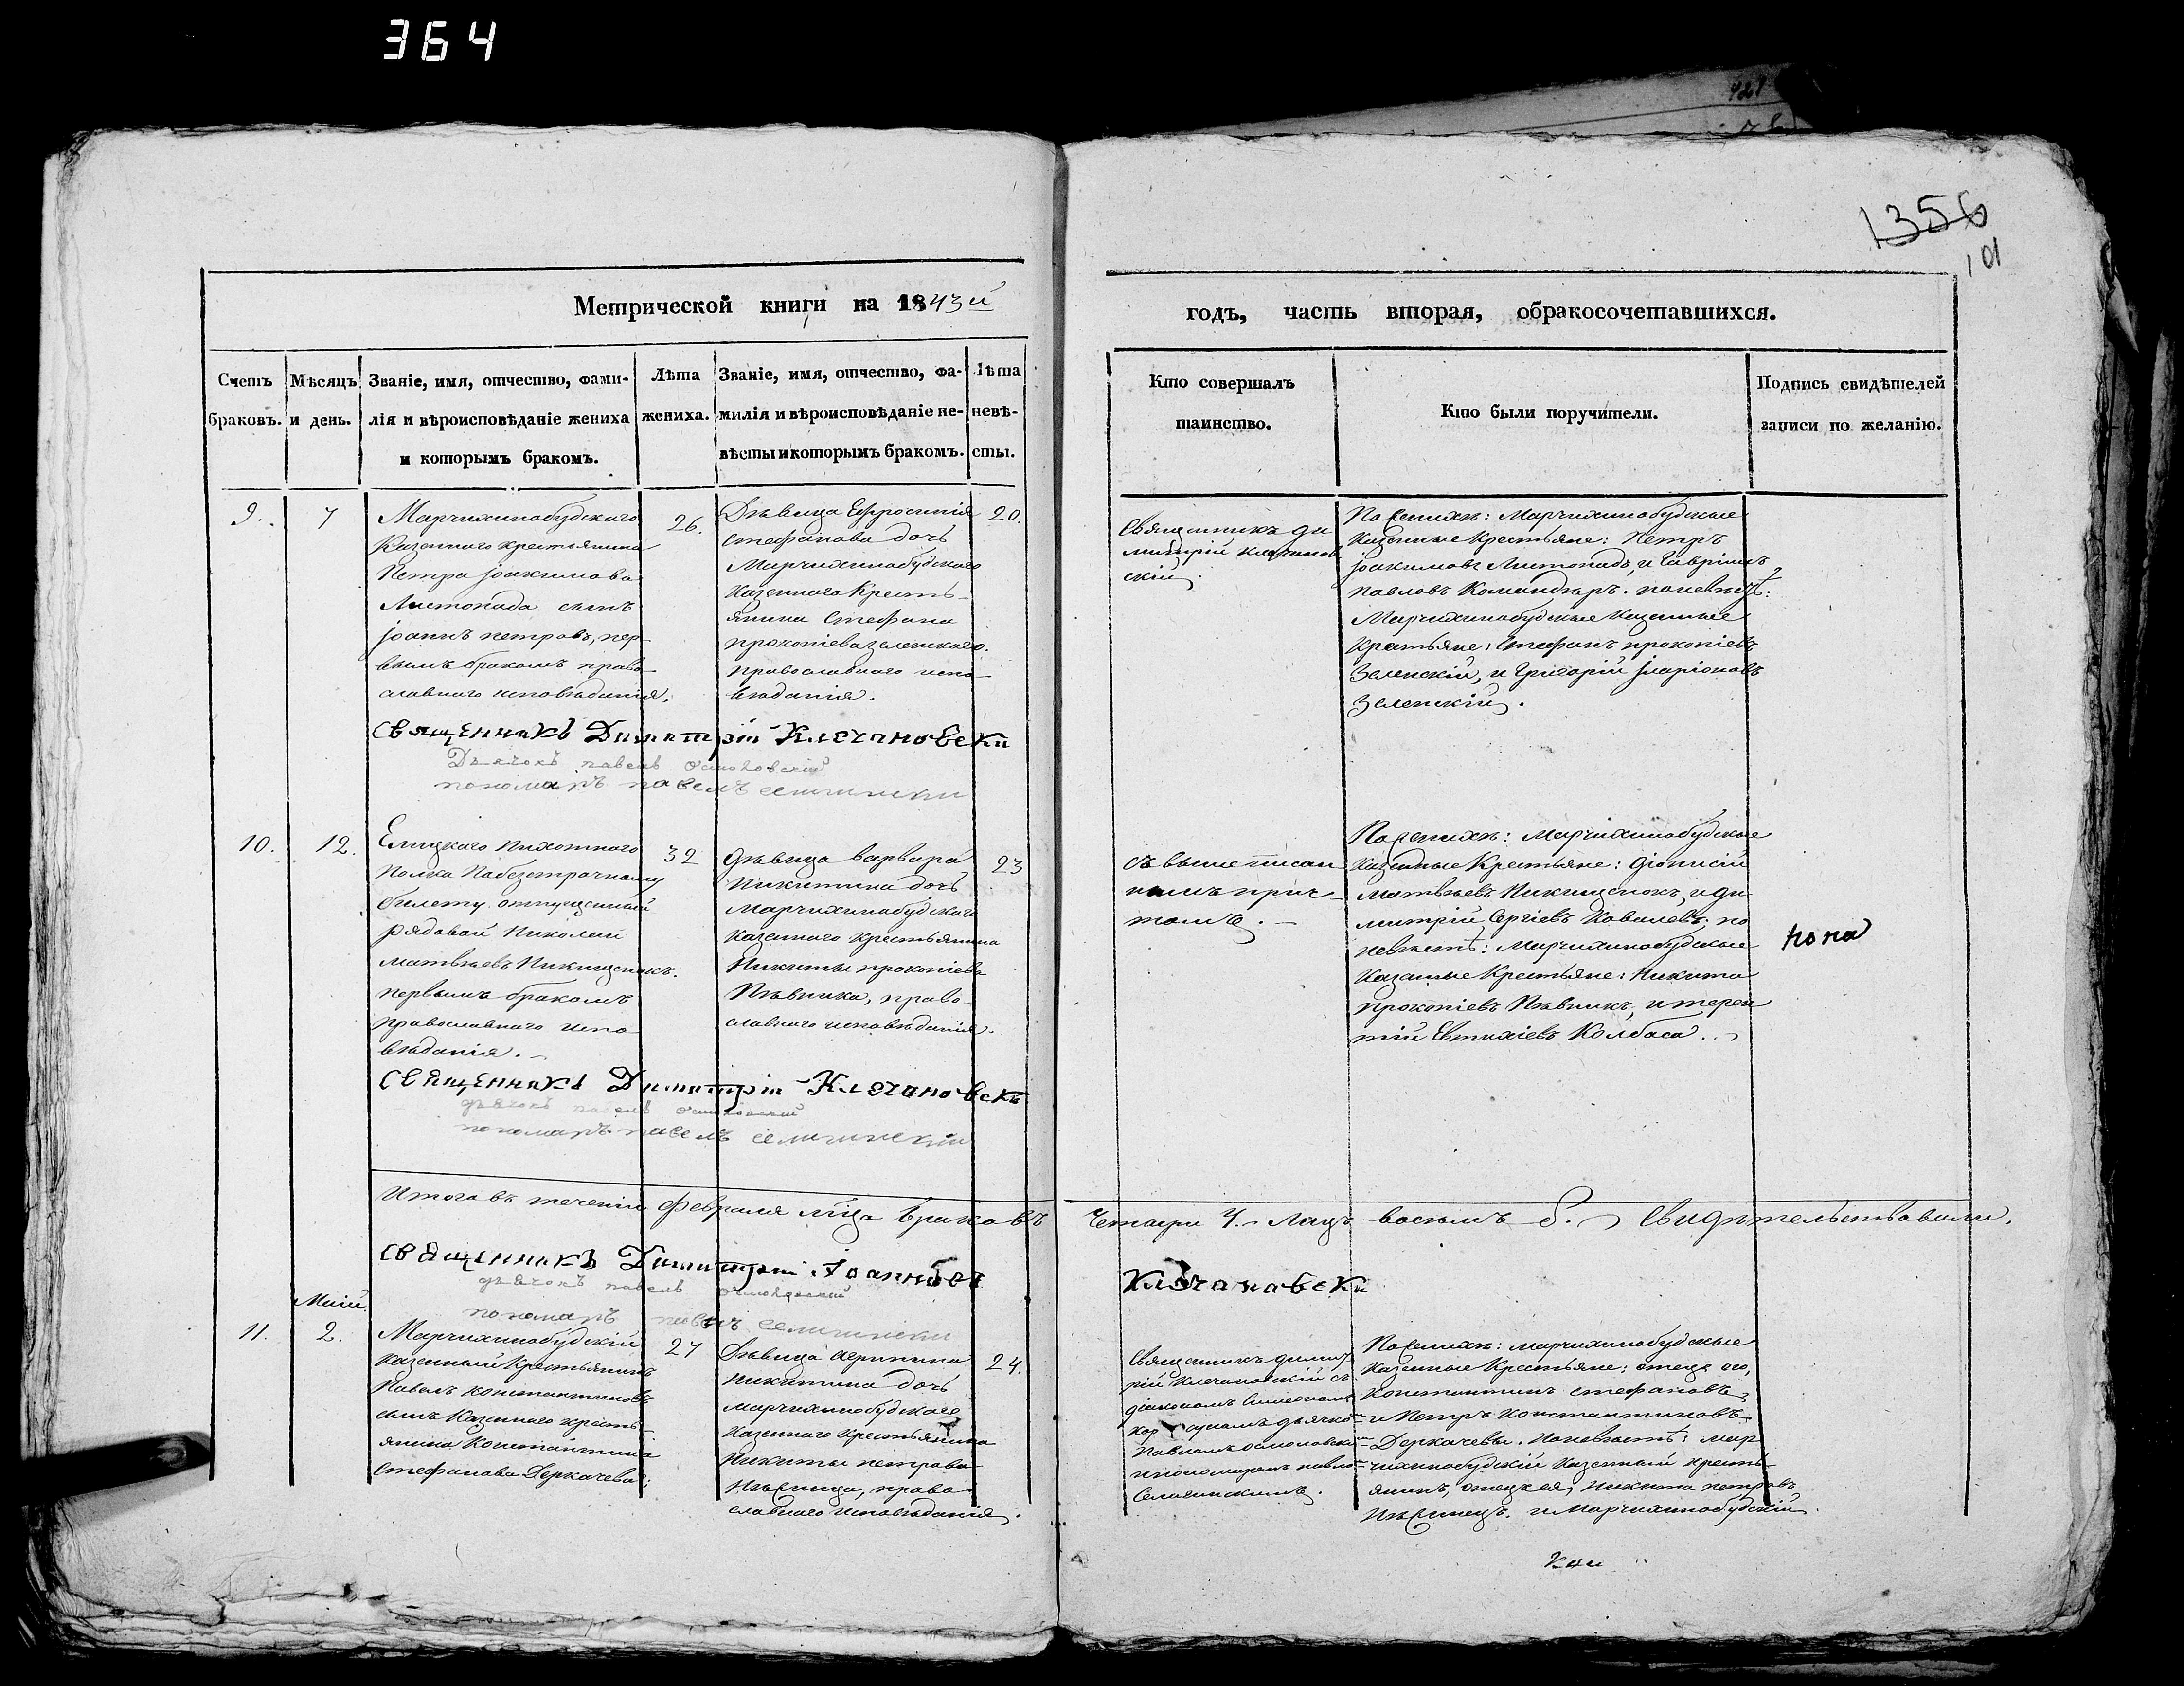 364
421
1356
101
Метрической книги на 1843й
годъ, часть вторая, обракосочетавшихся.
Счетъ браковъ.
Мѣсяцъ и день.
Званіе, имя, отчество, фами-
лія и вѣроисповѣданіе жениха
и которымъ бракомъ.
Лѣта
жениха.
Званіе, имя, отчество, фа-
милія и вѣроисповѣданіе не-
вѣсты и которымъ бракомъ.
Лѣта
невѣ-
сты.
Кто совершалъ
таинство.
Кто были поручители.
Подпись свидѣтелей
записи по желанію.
9.
7
Марчихинобудского
Казенного крестьянина
Петра Іоакимова
Листопада сынъ
Іоаннъ петровъ, пер-
вымъ бракомъ право-
славного исповѣданія.
26.
Дѣвица Ефросинія
Стефанова дочь
Марчихинобудского
Казенного Кресть-
янина Стефана
прокопіева зеленского.
православного испо-
вѣданія.
20.
Священникъ Ди
митрій Клечанов
скій.
По женихѣ: Марчихинобудские
Казенные Крестьяне: Петръ
Іоакимовъ Листопадъ, и Гавріилъ
павловъ Командыръ. по невѣстѣ:
Марчихинобудские Казенные
Крестьяне: Стефанъ прокопіевъ
Зеленскій, и Григорій Іларіоновъ
Зеленскій.
Священникъ Димитрій Клечановски
Дьячокъ павелъ Осмоловскій
пономаръ павелъ селигински
10.
12.
Елецкого пихотного
Полка По безсрочному
билету отпущенный
рядовой Николай
Матвѣевъ Никищенокъ.
первымъ бракомъ
православного испо
вѣданія.
32
Дѣвица Варвара
Никитина дочь
Марчихинобудского
Казенного крестьянина
Никиты прокопіева
Пѣвника, право-
славного исповѣданія.
23
съ вышеписан
нымъ прич-
томъ.
По женихѣ: Марчихинобудские
Казенные Крестьяне: Діонисій
Матвѣевъ Никищенокъ, и Ди
митрій Сергіевъ Ковалевъ; по
невѣстѣ: Марчихинобудские
Казенные Крестьяне: Никита
прокопіевъ Пѣвникъ, и терен
тій Евтихіевъ Колбаса.
Священникъ Димитрій Клечановски
дьячокъ павелъ осмоловскій
пономаръ павелъ селигинскій
Итого въ теченіи февраля мѣца браковъ четыри 4. Лицъ восемъ 8. Свидѣтельствовали.
Священникъ Димитрій Іоанновъ Клечановски
дьячокъ павелъ осмоловскій
пономаръ павелъ селигински
Маій.
11.
2.
Марчихинобудскій
казенный Крестьянинъ
Павелъ Константиновъ
сынъ Казенного кресть-
янина Константина
Стефанова Деркачева;
27
Дѣвица Агрипина
Никитина дочь
Марчихинобудского
Казенного крестьянина
Никиты петрова
право-
славного исповѣданія.
24.
Священникъ Димит
рій Клечановскій съ
діакономъ Симеономъ
дьячко
Павломъ осмоловски
и пономаромъ павло
Селигинскимъ.
По женихѣ: марчихинобудские
Казенные Крестьяне: отецъ его,
Константинъ стефановъ,
и Петръ Константиновъ
Деркачевы. по невѣстѣ: мар
чихинобудскій Казенный кресть-
янинъ, отецъ ея, Никита петровъ
и Марчихинобудскій